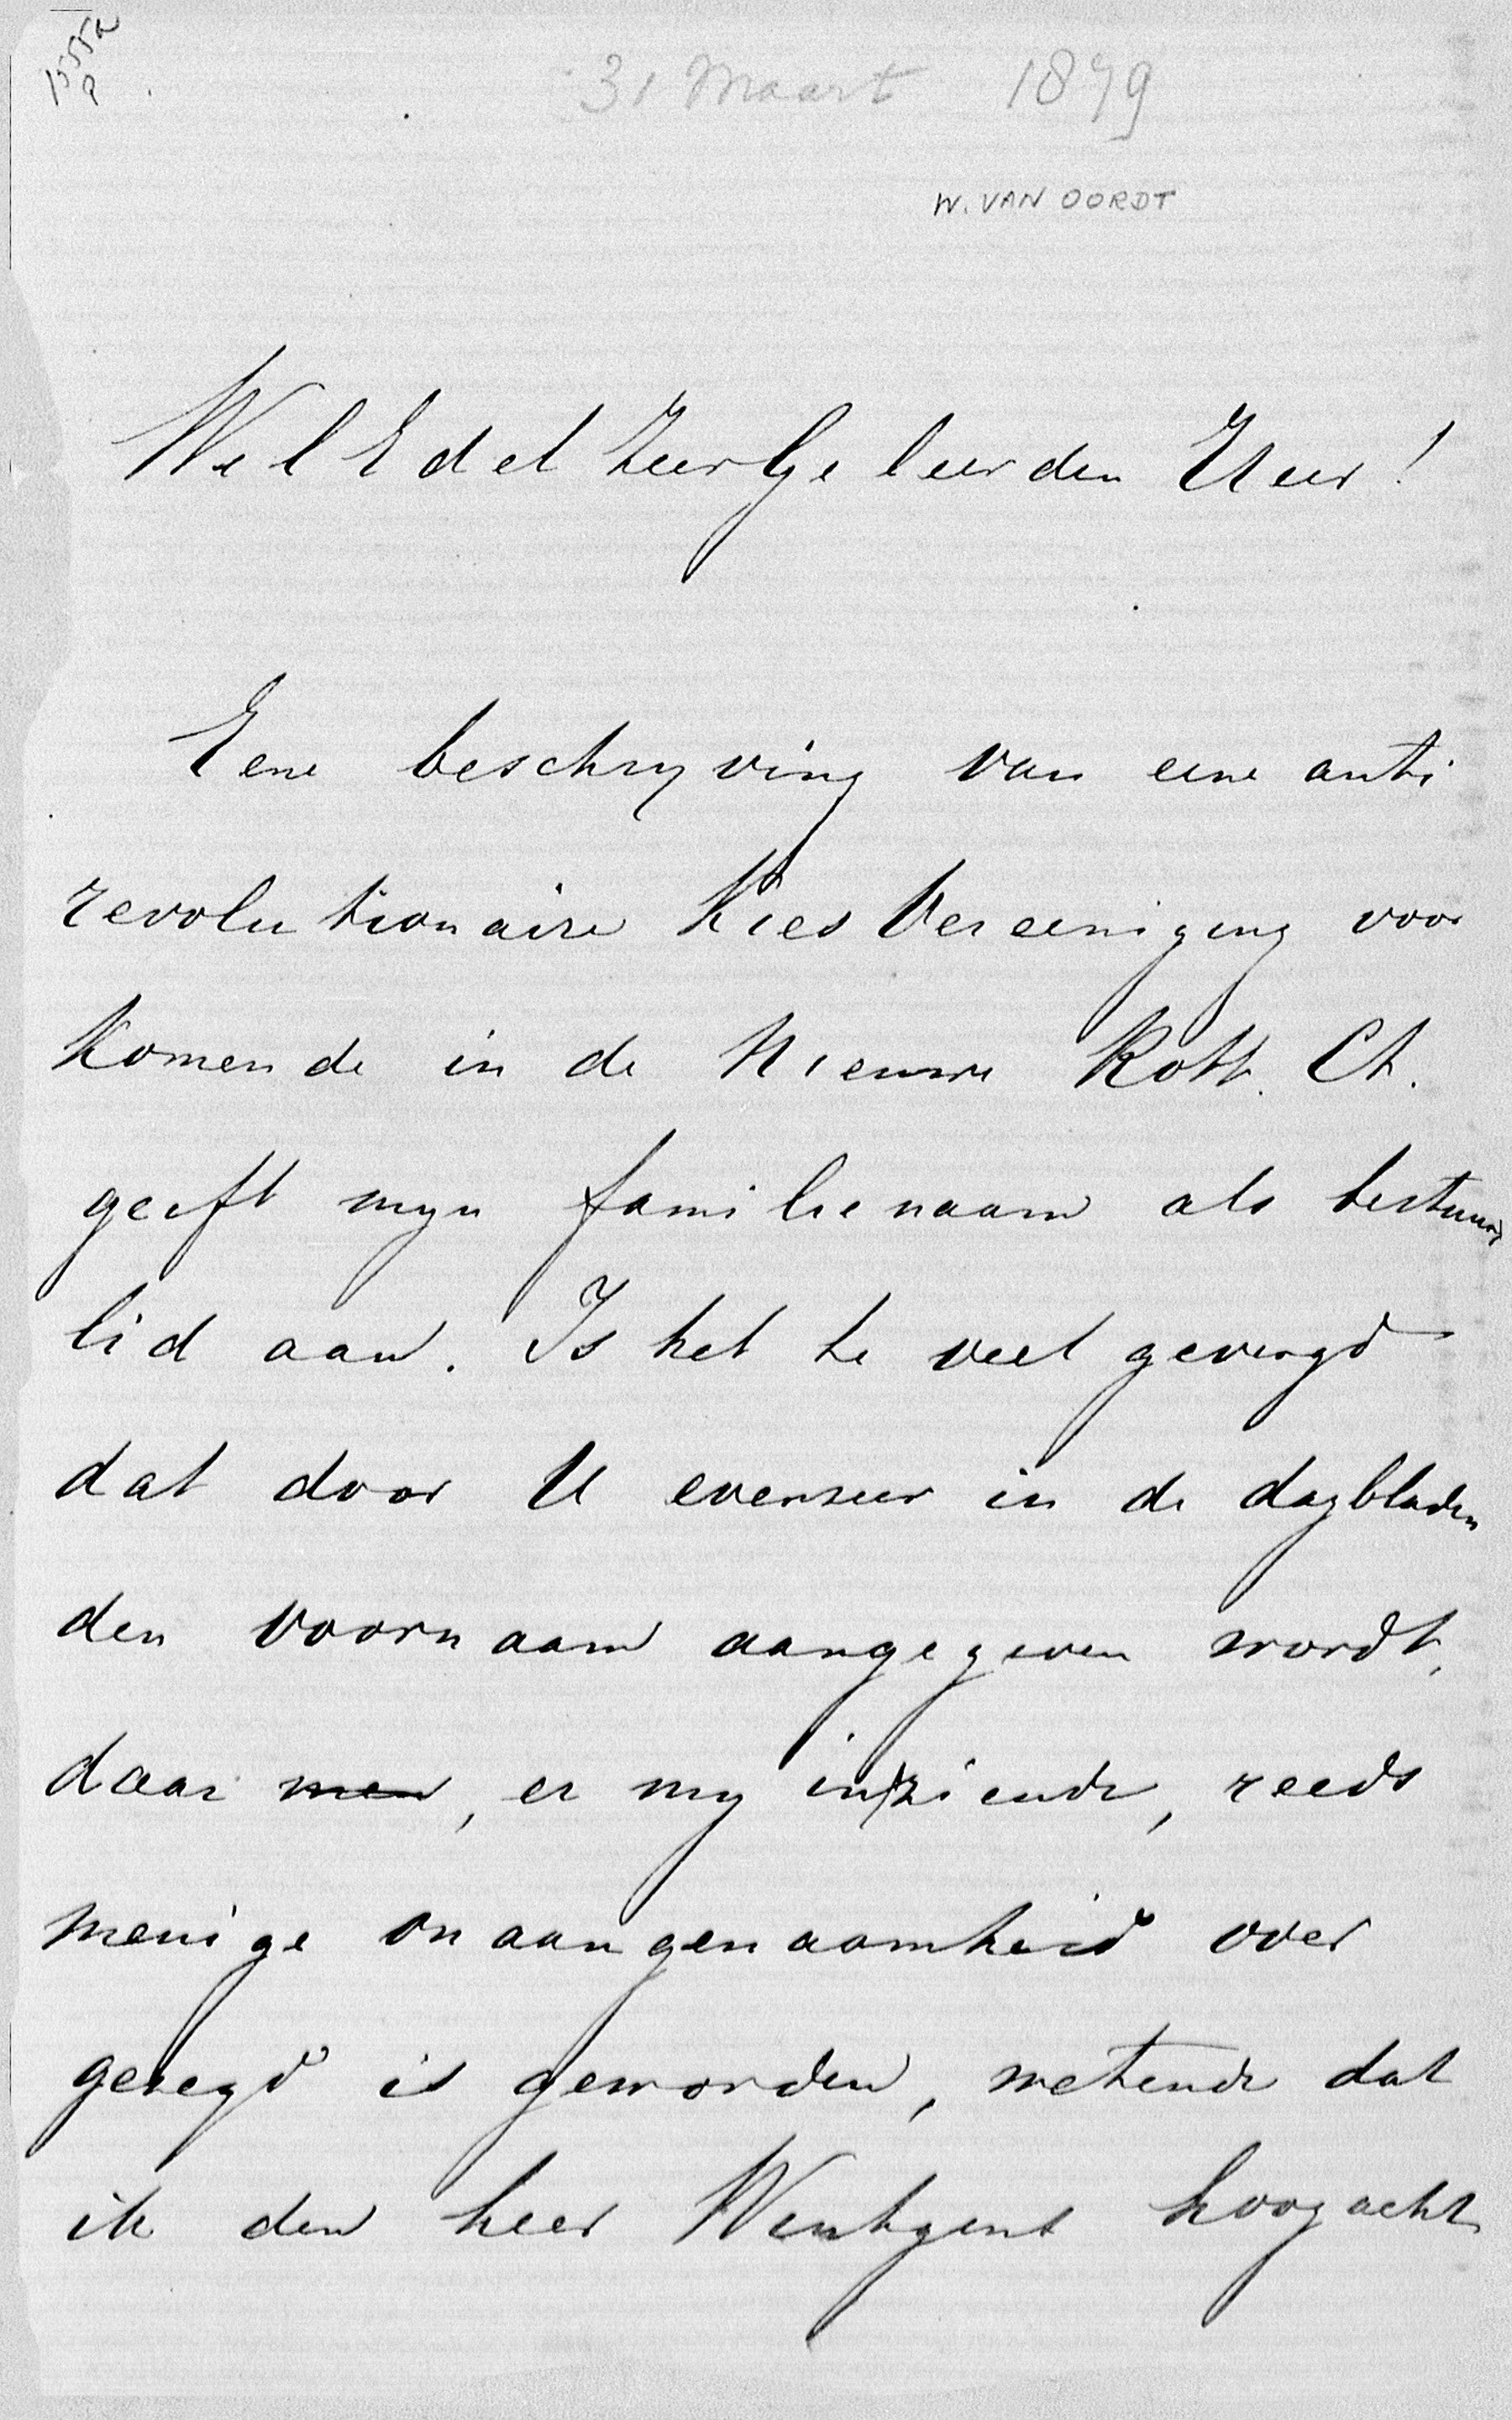 1555a
31 Maart 1879
W. VAN OORDT
WelEdelZeerGeleerden Heer!
Eene beschryving van eene anti
revolutionaire KiesVereeniging voor
komende in de Nieuwe Rott. Ct.
geeft myn familienaam als bestuurs
lid aan. Is het te veel gevergd
dat door U evenzeer in de dagbladen
den voornaam aangegeven wordt,
daar men, er my inziende, reeds
menige onaangenaamheid over
gezegd is geworden, wetende dat
ik den heer Wintgens hoogacht